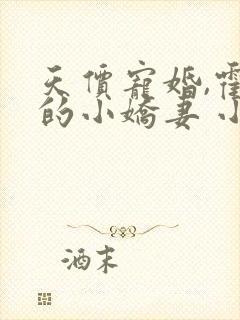 天價寵婚,霍
的小嬌妻 小
酒末